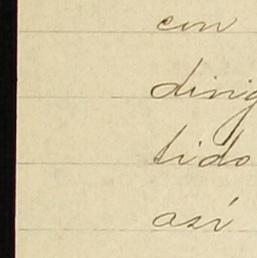 con
dirig
tido
así